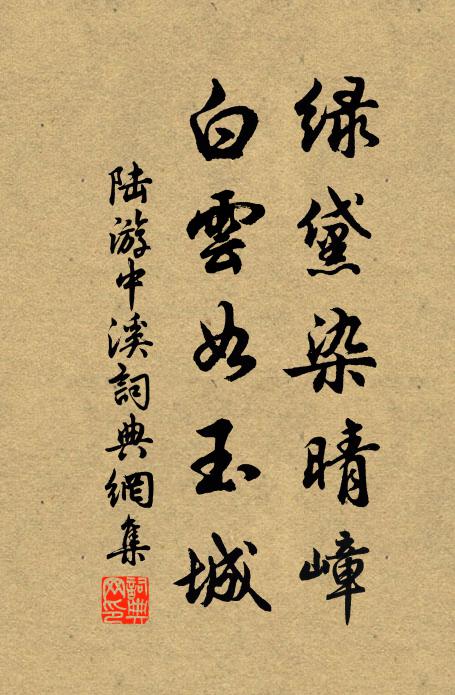 绿黛染晴嶂
白雲如玉城
陆游中溪詞典網集
詞典网印